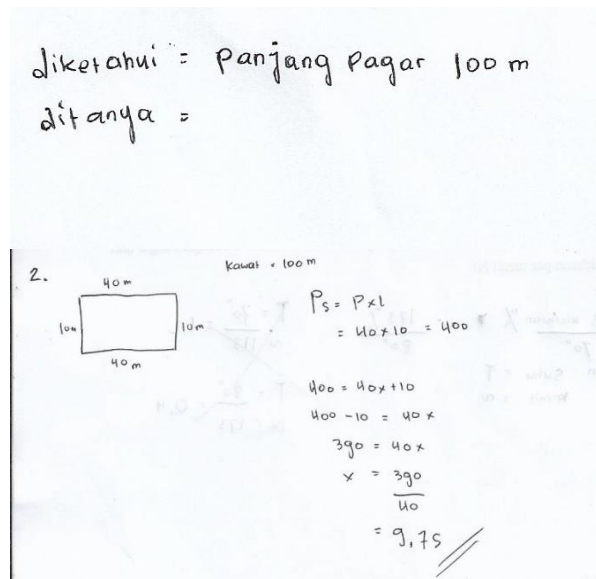 diketahui = Panjang Pagar 100 m
ditanya =
2.
Kawat = 100 m
40 m
10m
10m
40 m
Ps = P x l
= 40 x 10 = 400
400 = 40x + 10
400 - 10 = 40 x
390 = 40x
x = 390
40
= 9,75